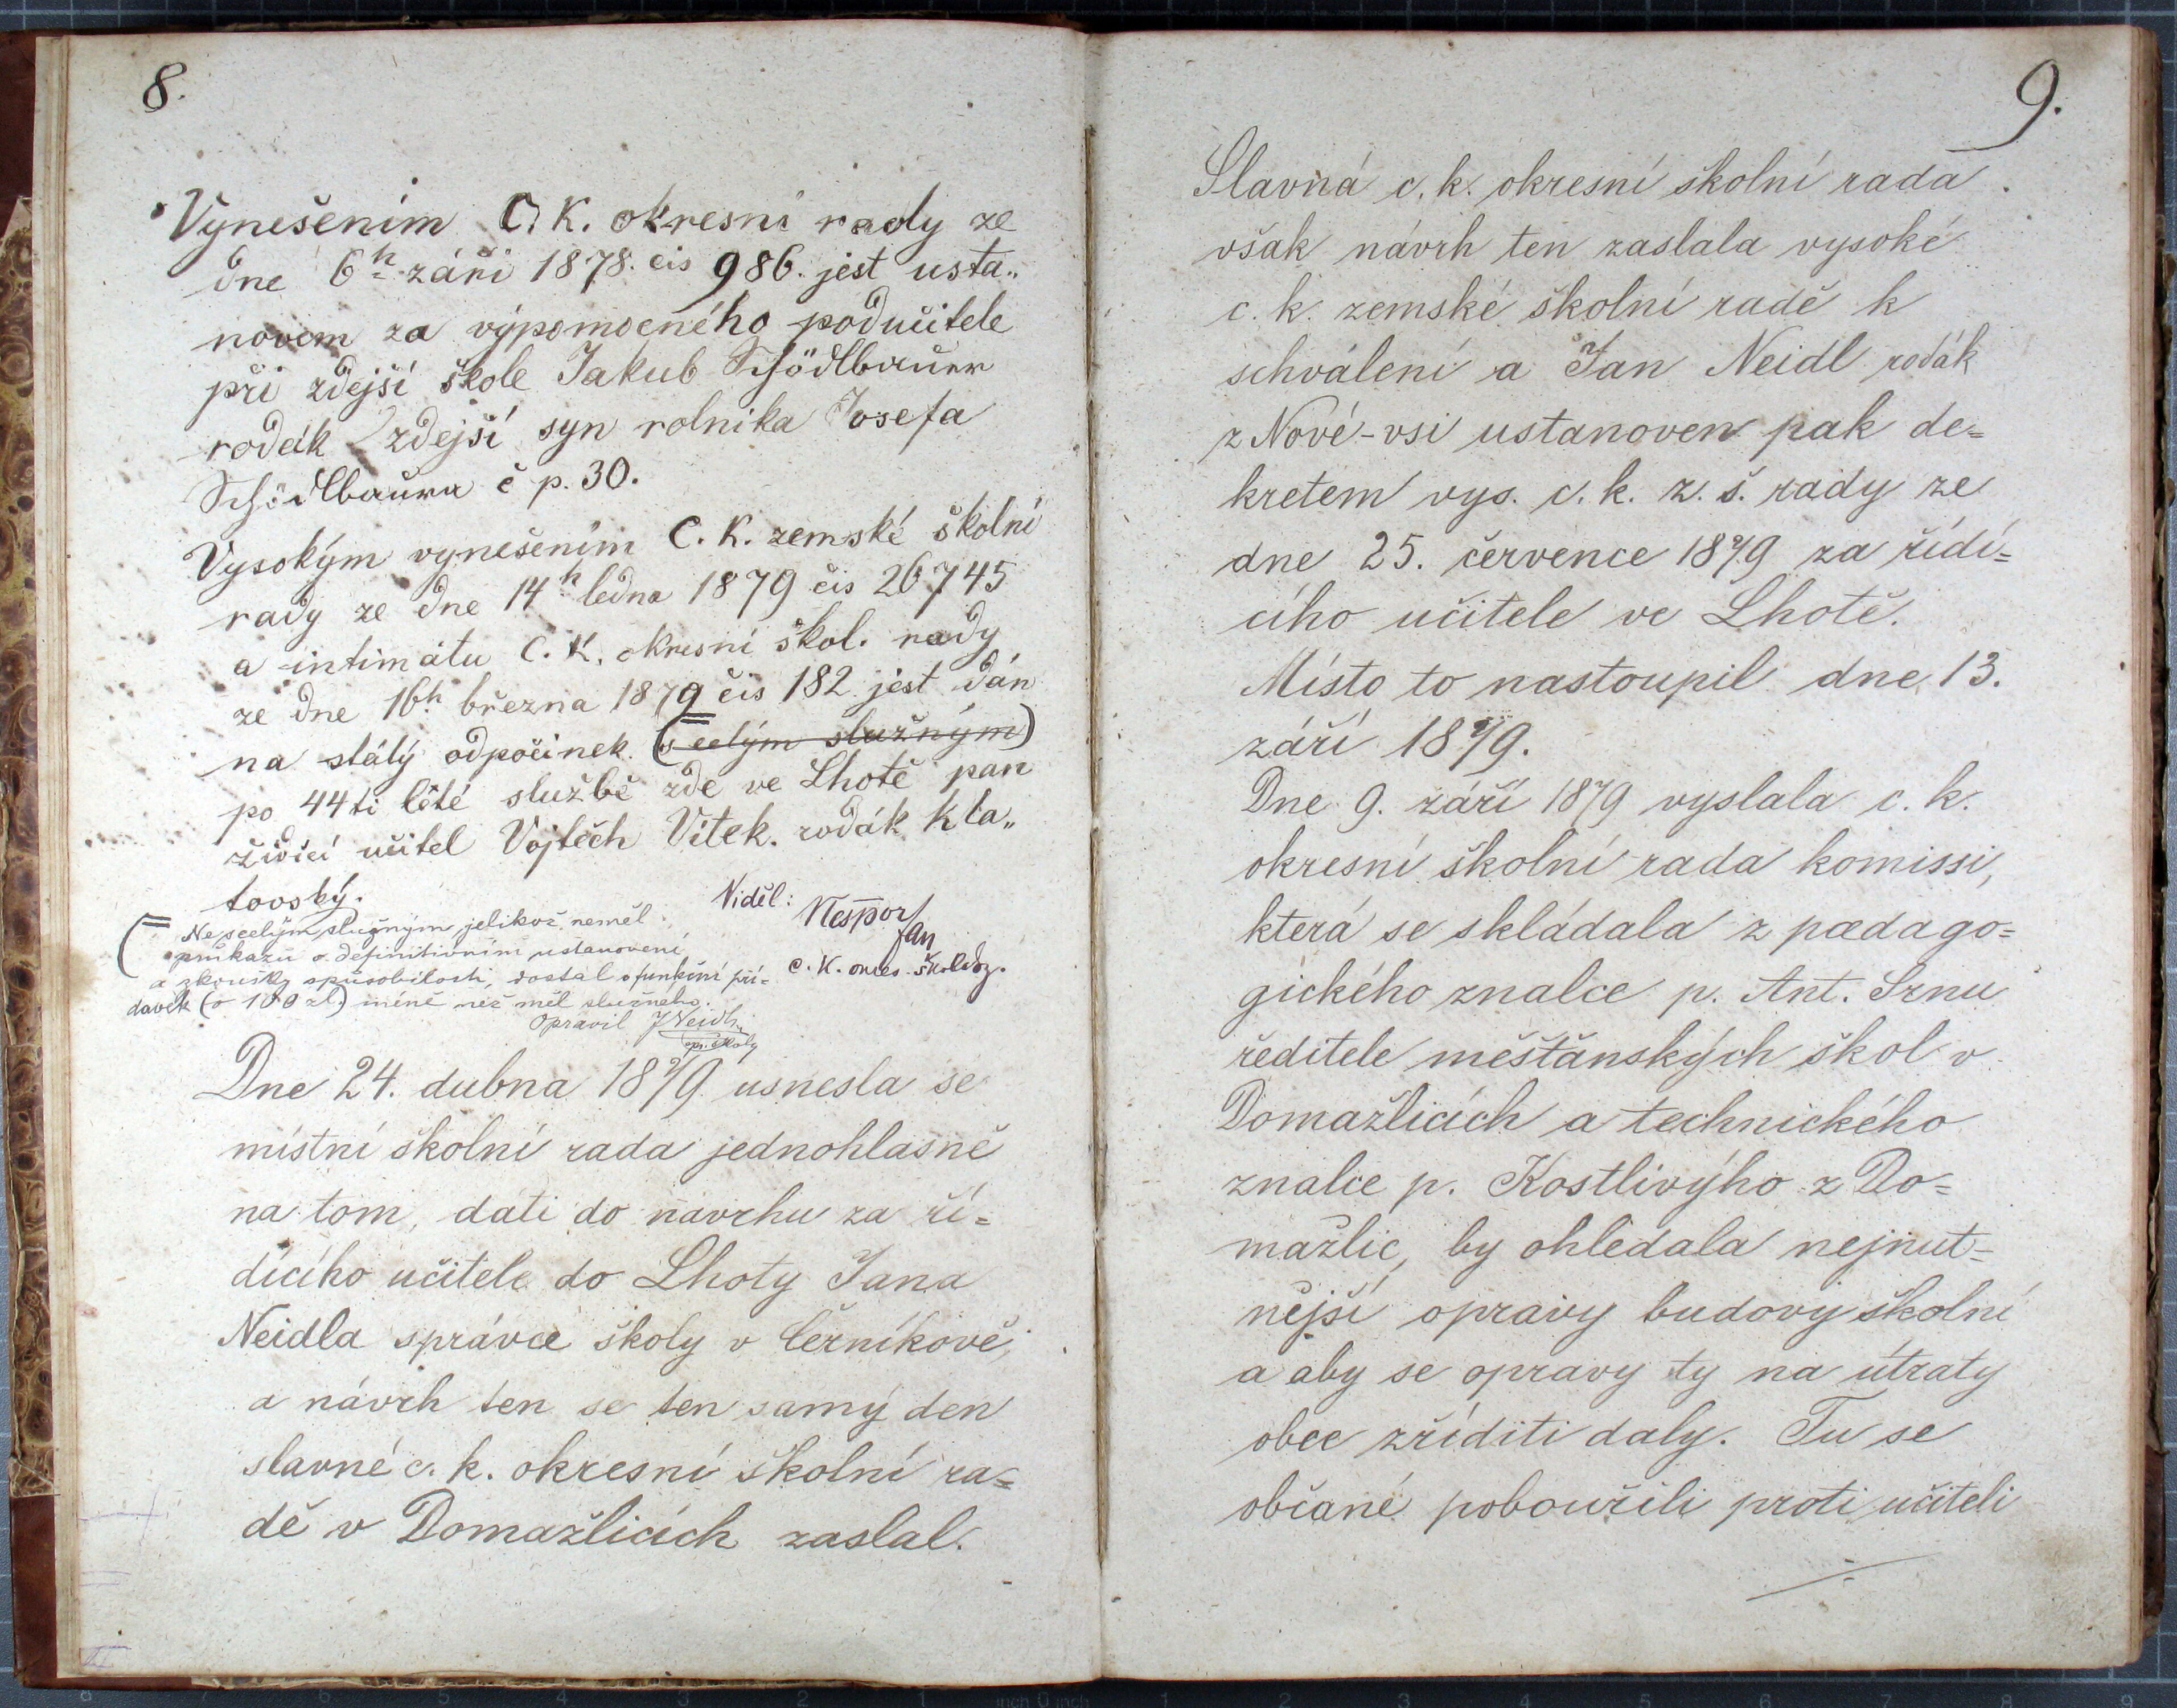 8.
Vynešením C. K. okresní rady ze
dne 6h září 1878. čis 986. jest usta„
noven za výpomocného podučitele
při zdejší škole Jakub Schödlbauer
rodák zdejší syn rolníka Josefa
Schödlbaura č p. 30.
Vysokým vynešením C. K. zemské školní
rady ze dne 14h ledna 1879 čis 26745
a intimátu C. K. okresní škol. rady
ze dne 16h března 1879 čis 182 jest dán
na stálý odpočinek (s celým služným)
po 44ti lété službě zde ve Lhotě pan
řídicí učitel Vojtěch Vítek. rodák Kla„
tovský.
Viděl:
Nešpor Jan
C. K. okres. škol. doz.
Ne s celým služným, jelikož neměl
průkazu o definitivním ustanovení
a zkoušky způsobilosti, dostal o funkční pří=
davek (o 100 zl.) méně než měl služného.
Opravil J Neidl,
spr. školy
Dne 24. dubna 1879 usnesla se
místní školní rada jednohlasně
na tom, dáti do návrhu za ří=
dícího učitele do Lhoty Jana
Neidla správce školy v Černíkově,
a návrh ten se ten samý den
slavné c. k. okresní školní ra=
dě v Domažlicích zaslal.
9.
Slavná c. k. okresní školní rada
však návrh ten zaslala vysoké
c. k. zemské školní radě k
schválení a Jan Neidl rodák
z Nové-vsi ustanoven pak de=
kretem vys. c. k. z. š. rady ze
dne 25. července 1879 za řídí=
cího učitele ve Lhotě.
Místo to nastoupil dne 13.
září 1879.
Dne 9. září 1879 vyslala c. k.
okresní školní rada komissi,
která se skládala z paedago=
gického znalce p. Ant. Srnu
ředitele měšťanských škol v
Domažlicích a technického
znalce p. Kostlivýho z Do=
mažlic, by ohledala nejnut=
nější opravy budovy školní
a aby se opravy ty na útraty
obce zříditi daly. Tu se
občané pobouřili proti učiteli